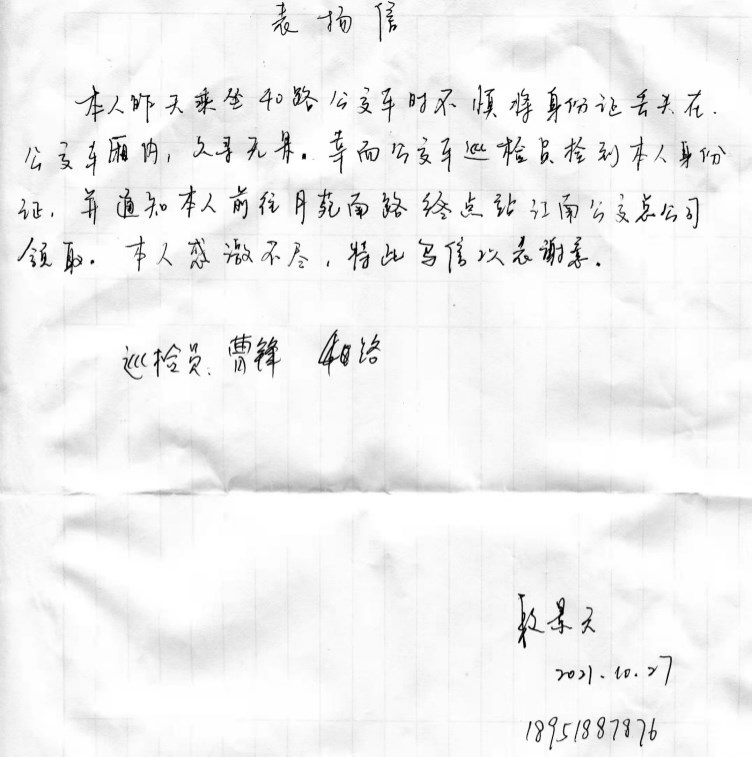 表扬信
本人昨天乘坐40路公交车时不慎将身份证丢失在
公交车厢内,久寻无果。幸而公交车巡检员捡到本人身份
证,并通知本人前往月苑南路终点站江南公交总公司
领取。本人感激不尽,特此写信以表谢意。
巡检员、曹锋
景天
2021.10.27
18951887876